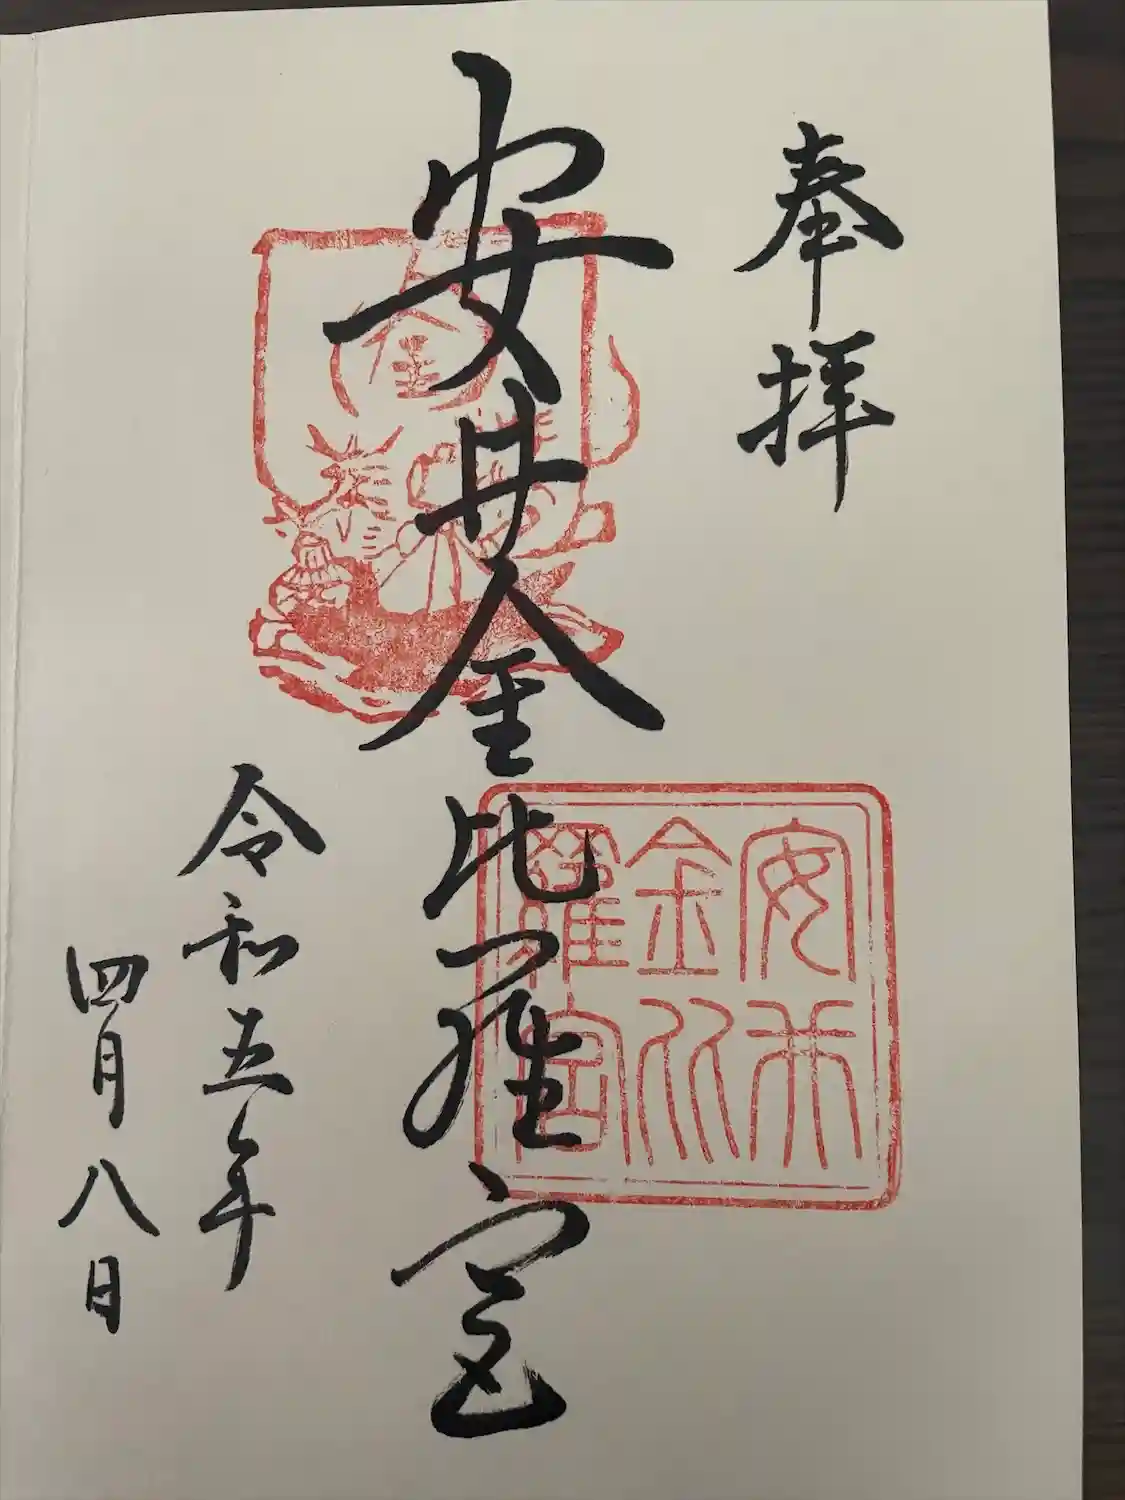 奉拝
安井金比羅宮
安井
金比
羅宮
金
令和五年
四月八日